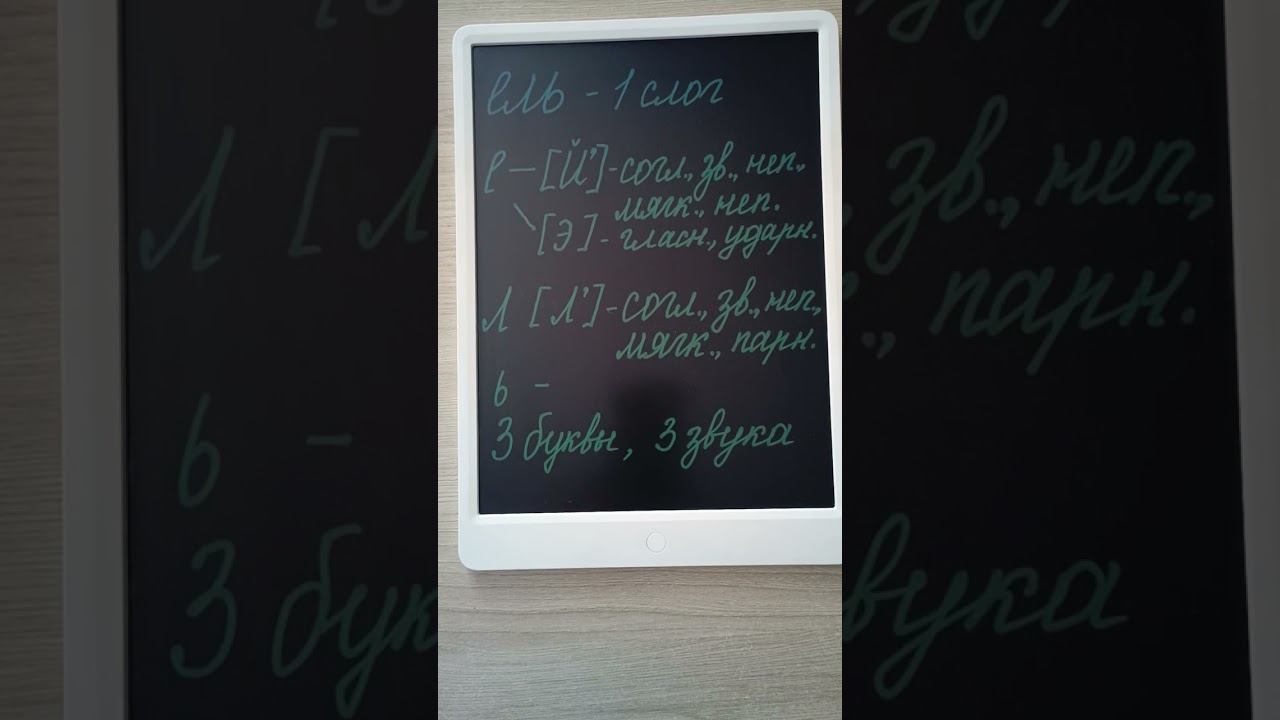 ель - 1 слог
е - [Й'] - согл., зв., неп.,
мягк., неп.
[Э] - гласн., ударн.
Л [Л'] - согл., зв., неп.,
мягк., парн.
ь -
3 буквы, 3 звука